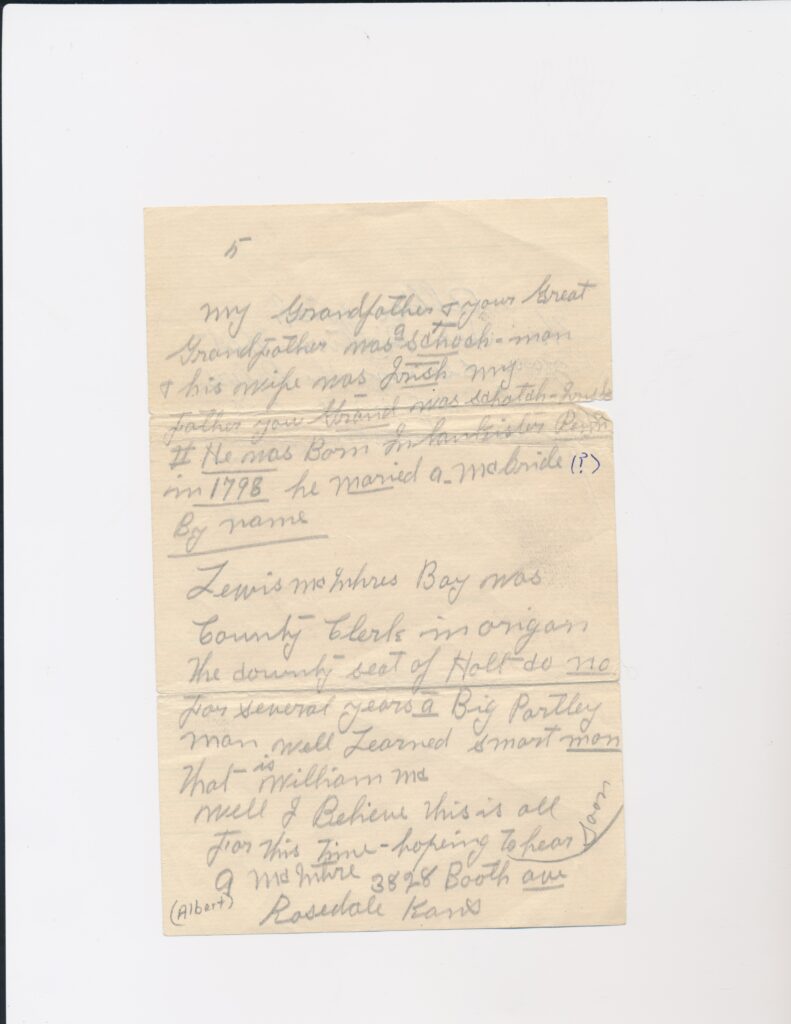 5
My Grandfather & your Great
Grandfather was a schoch-man
& his wife was Irish my
Father you Grand was schotch-Irish
II He was Born In Lankister Penn
in 1798 he maried a Mcbride (?)
By name
Lewis McIntires Boy was
County Clerk in origan
the county seat of Holt-do no
For several years a Big Portley
man well Learned smart man
that is William Mc
well I Believe this is all
For this time-hoping to hear soon
McIntire 3828 Booth ave
(Albert)
Rosedale Kans